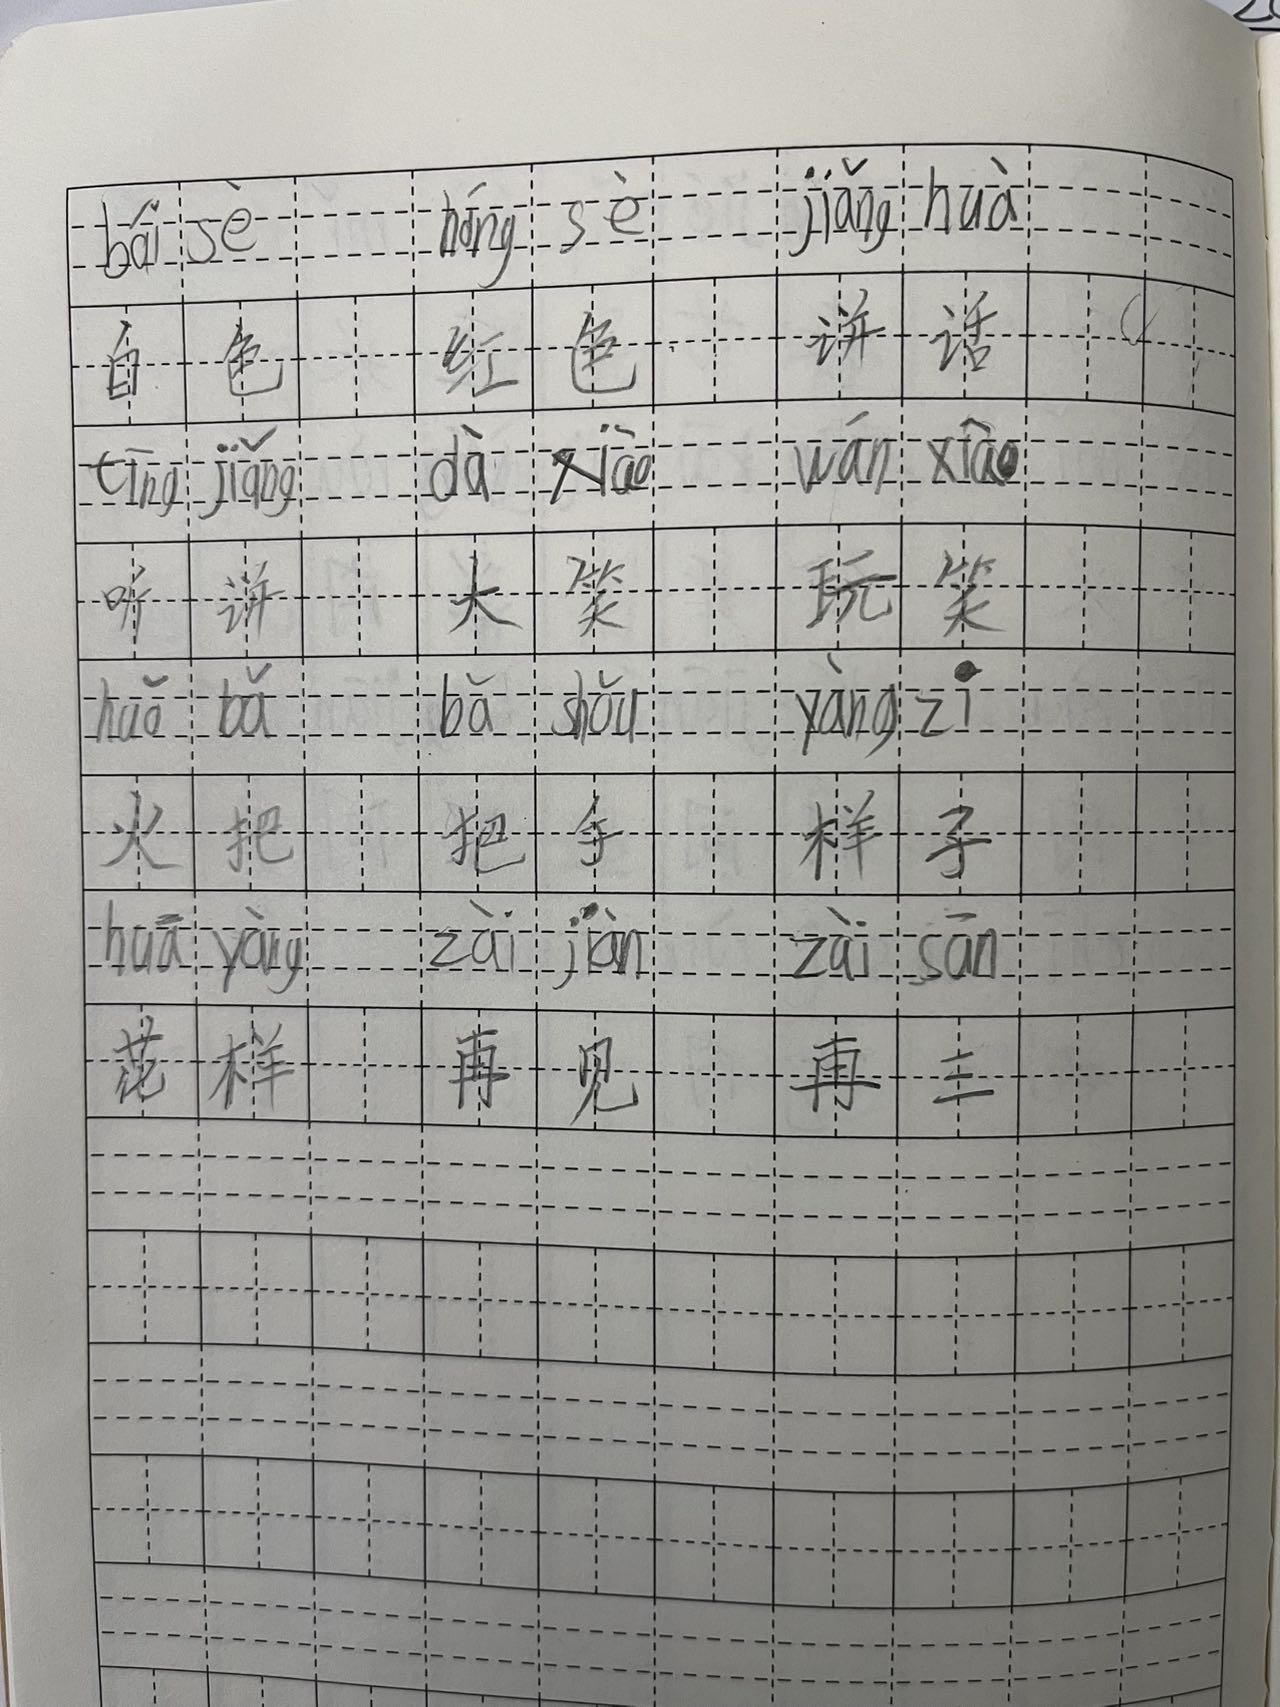 bái sè hóng sè jiǎng huà
白色 红色 讲话
tīng jiǎng dà xiào wán xiào
听讲 大笑 玩笑
huǒ bǎ bǎ shǒu yàng zi
火把 把手 样子
huā yàng zài jiàn zài sān
花样 再见 再三